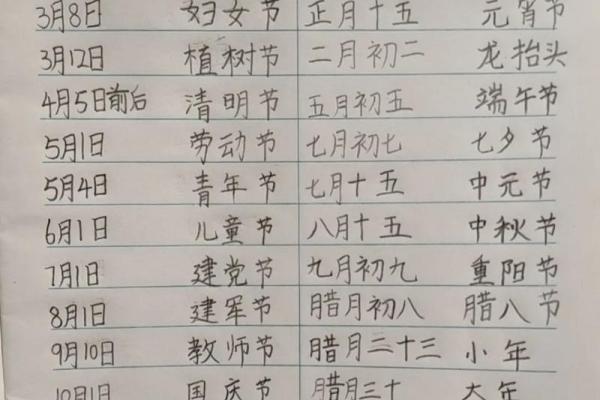 3月8日 妇女节 正月十五 元宵节
3月12日 植树节 二月初二 龙抬头
4月5日前后 清明节 五月初五 端午节
5月1日 劳动节 七月初七 七夕节
5月4日 青年节 七月十五 中元节
6月1日 儿童节 八月十五 中秋节
7月1日 建党节 九月初九 重阳节
8月1日 建军节 腊月初八 腊八节
9月10日 教师节 腊月二十三 小年
10月1日 国庆节 腊月三十 大年